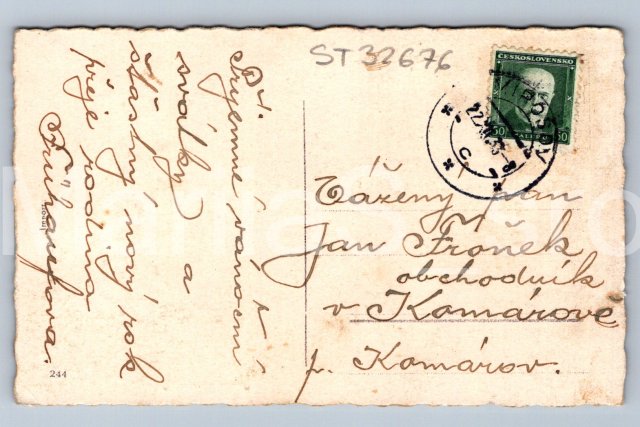 ST 32676
ČESKOSLOVENSKO
50 HALÍŘŮ 50
P. T.
Příjemné vánoční
svátky a
šťastný nový rok
přeje rodina
Frühaufova.
244
Vážený pán
Jan Froněk
obchodník
v Komárově
p. Komárov.